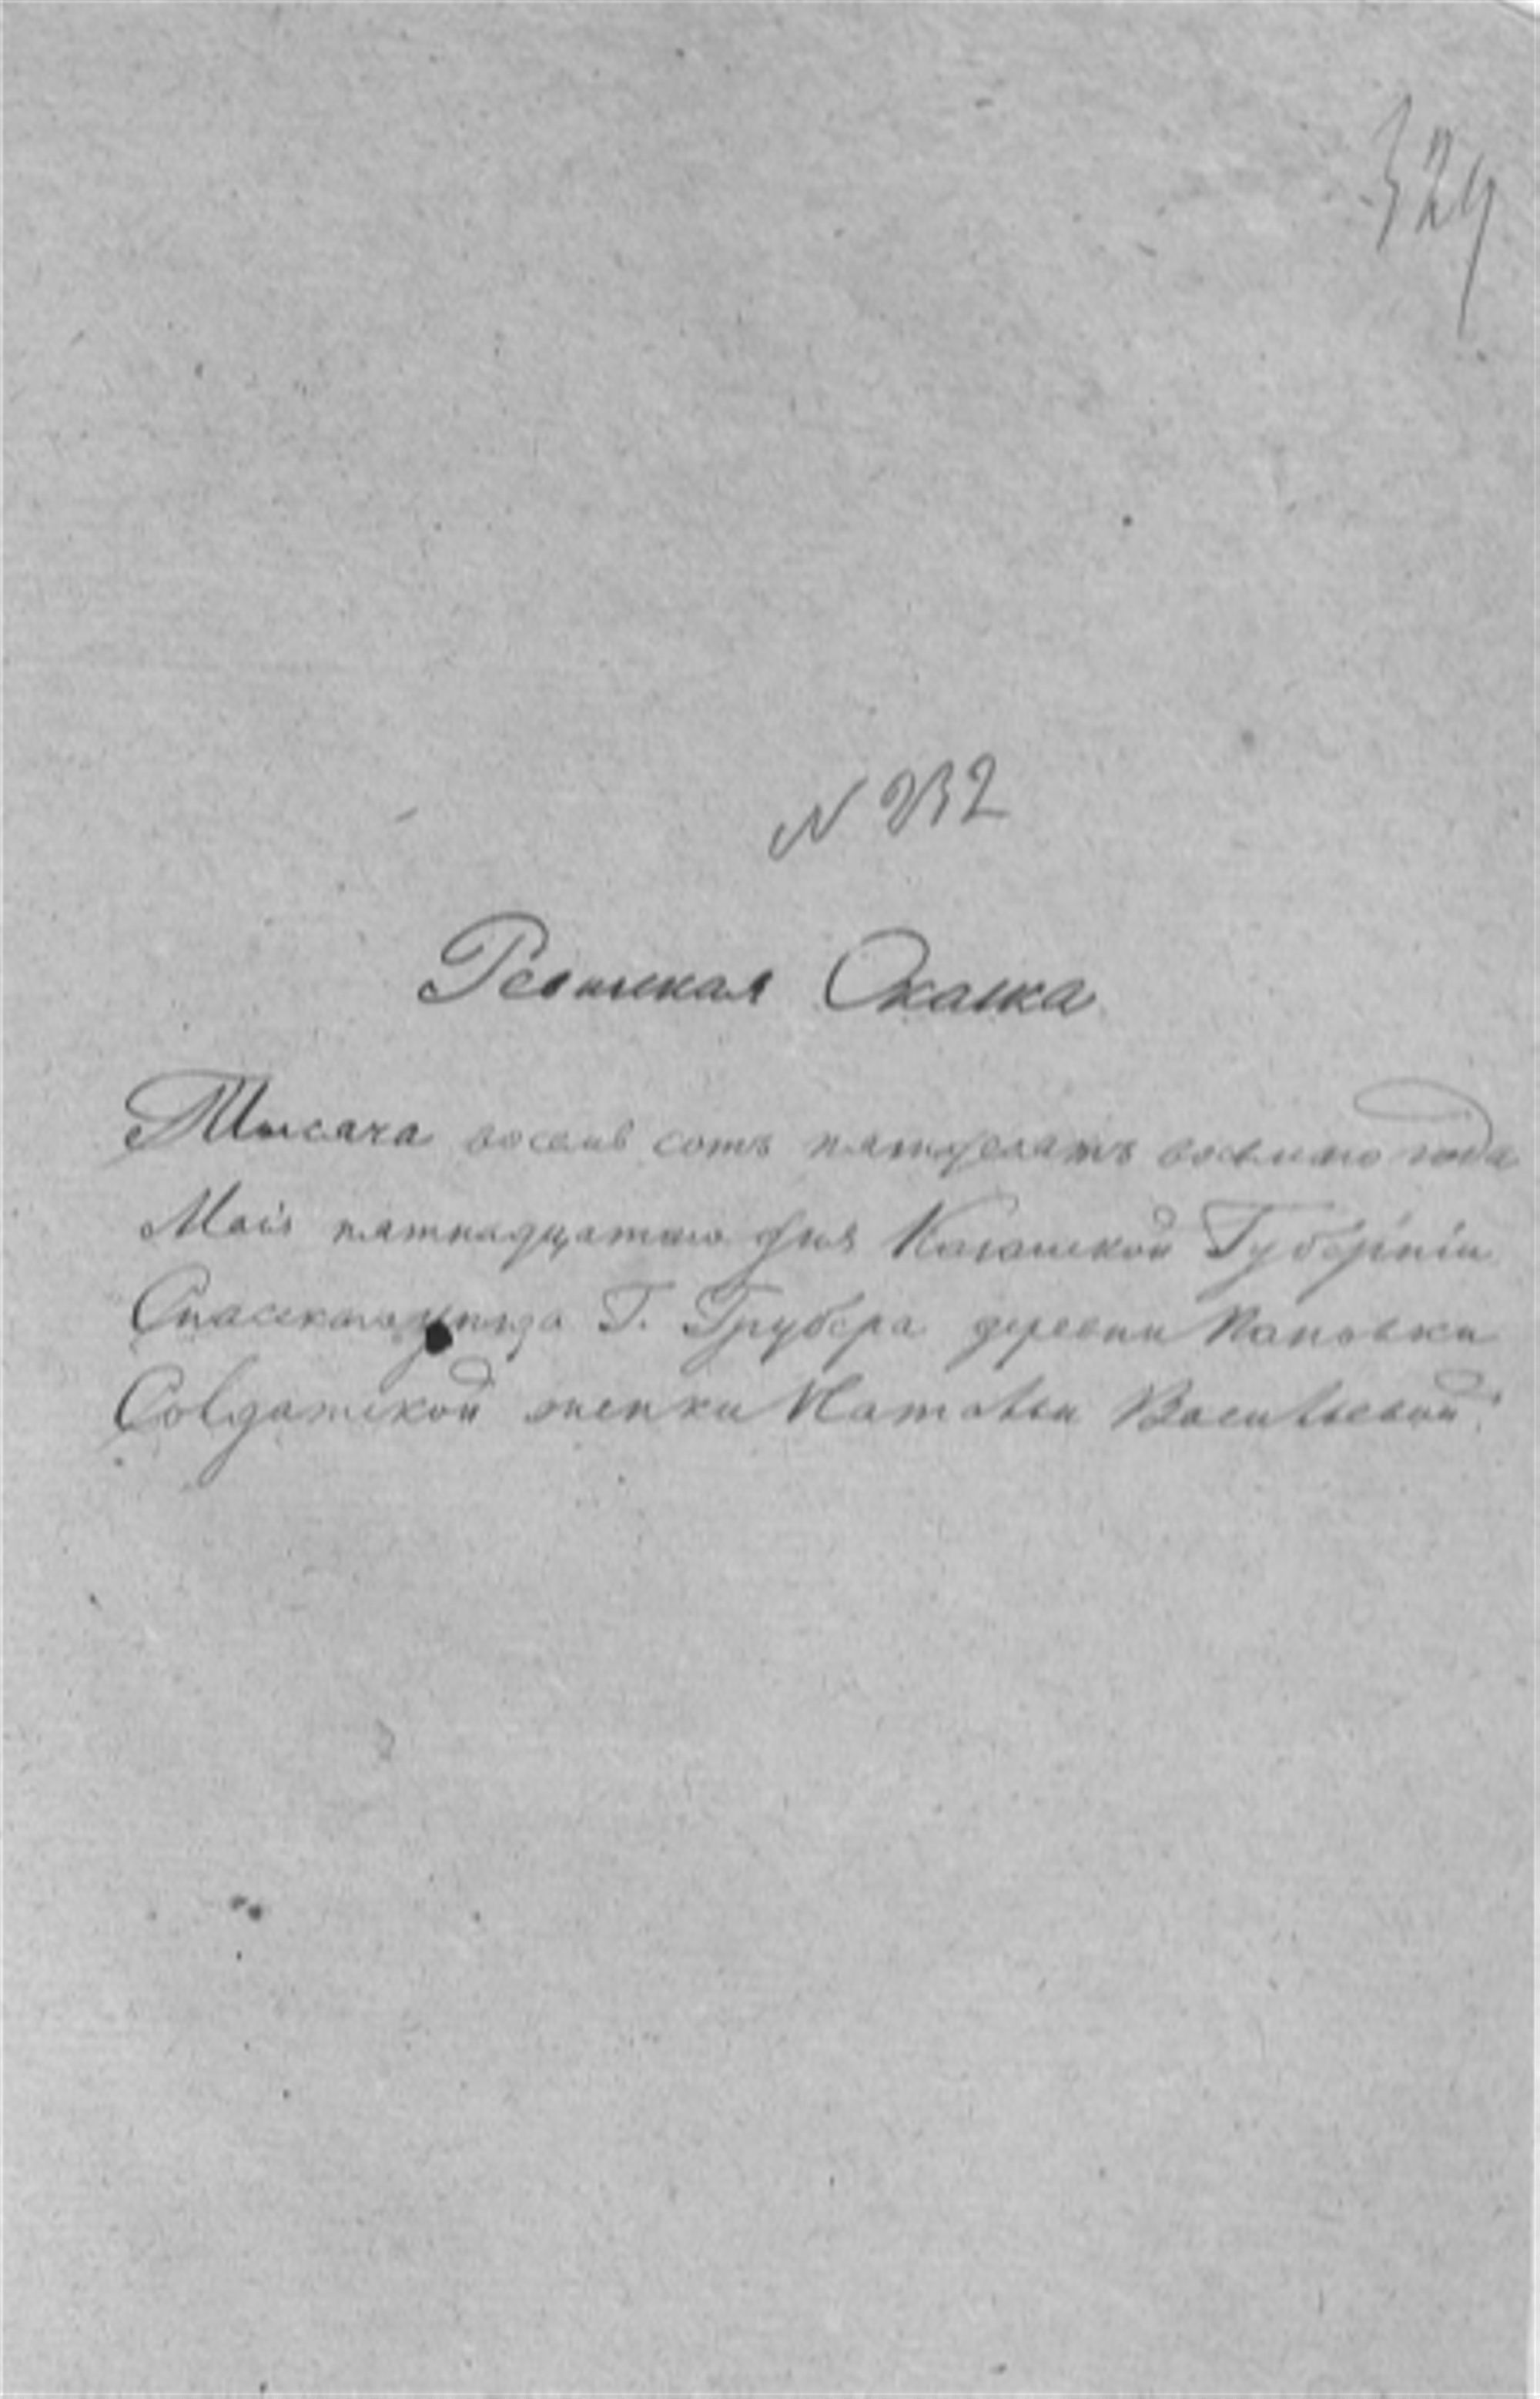 329
N 232
Ревизская Сказка
Тысяча восемь сотъ пятьдесятъ восьмаго года
Маія пятнадцатаго дня Казанской Губерніи
Спасскаго уѣзда Г. Грубера деревни
Солдатской женки Натальи Васильевой.